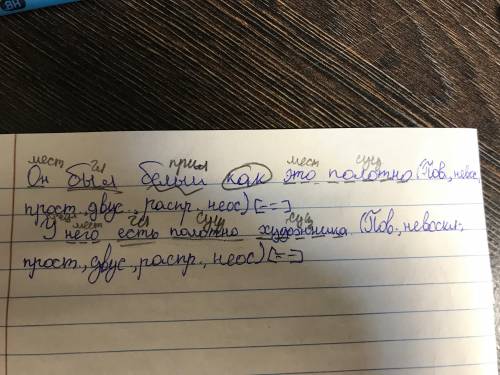 мест гл прил мест сущ
Он был белый как это полотно (Пов., невос.,
прост., двус., распр., неос) [- =]
мест гл сущ сущ
У него есть полотно художница. (Повь., невоскл.,
прост., двус., распр., неос) [= -]